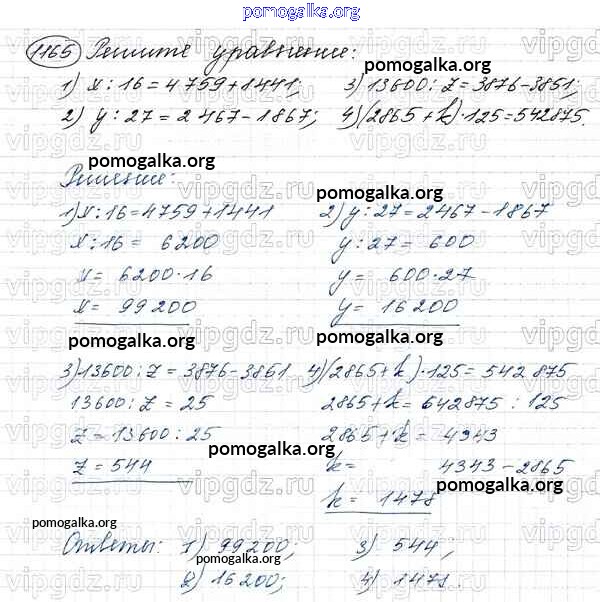 pomogalka.org
1165 Решите уравнение:
1) x : 16 = 4759 + 1441; 3) 13600 : z = 3876 - 3851;
2) y : 27 = 2467 - 1867; 4) (2865 + k) · 125 = 542875.
pomogalka.org
Решение: pomogalka.org
1) x : 16 = 4759 + 1441 2) y : 27 = 2467 - 1867
x : 16 = 6200 y : 27 = 600
x = 6200 · 16 y = 600 · 27
x = 99200 y = 16200
pomogalka.org pomogalka.org
3) 13600 : z = 3876 - 3861 4) (2865 + k) · 125 = 542875
13600 : z = 25 2865 + k = 642875 : 125
z = 13600 : 25 2865 + k = 4343
pomogalka.org
z = 544 k = 4343 - 2865
pomogalka.org
k = 1478
pomogalka.org
Ответы: 1) 99200; 3) 544;
pomogalka.org
2) 16200; 4) 1478.
vipgdz.ru